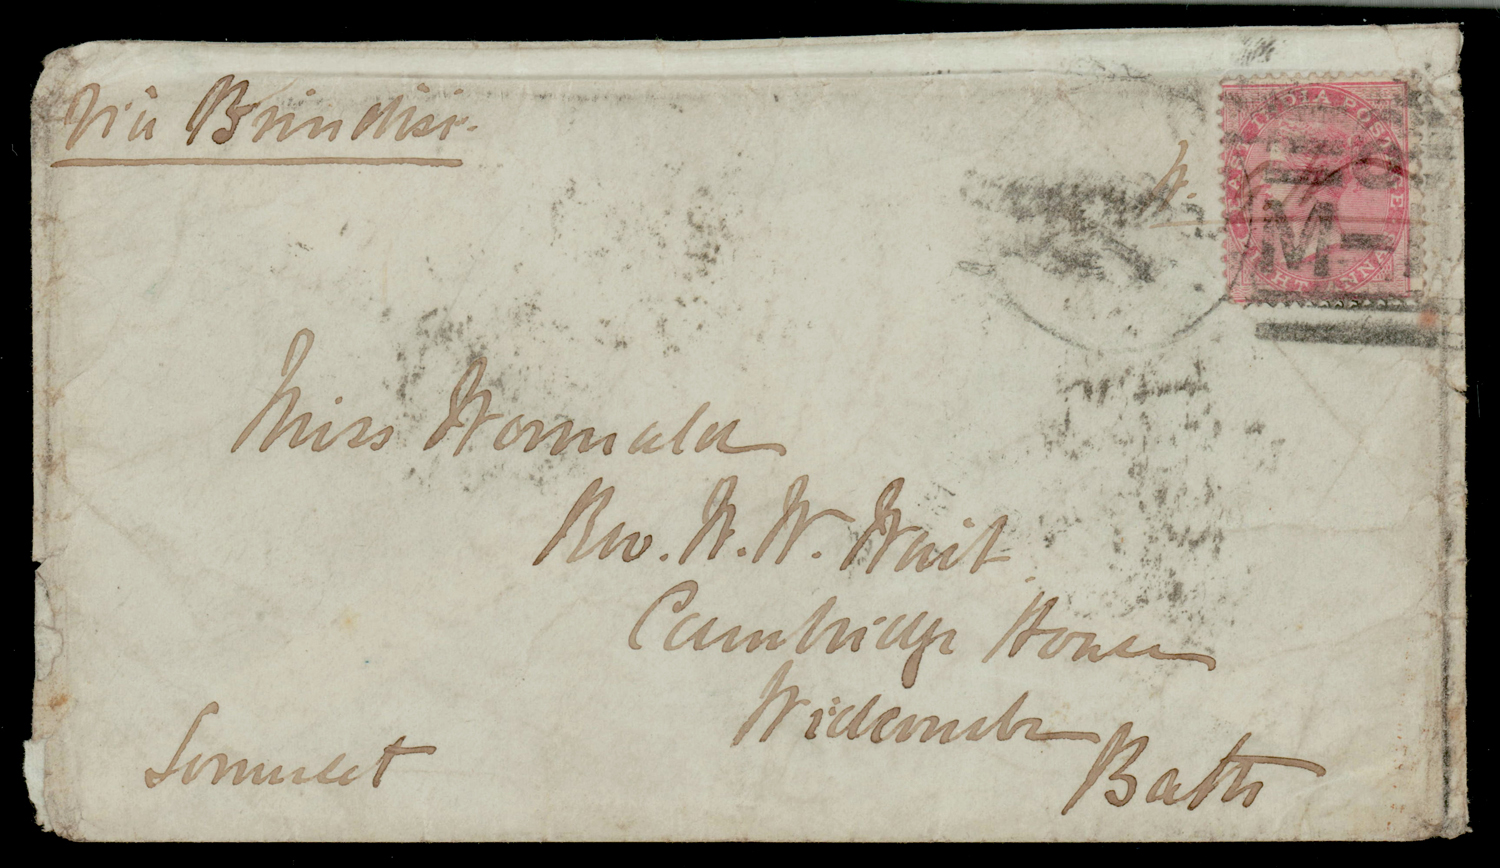 Via Brindisi.
EAST INDIA POSTAGE
EIGHT ANNAS
M
Miss Wormald
Rev. W. W. Wait
Cambridge House
Widcombe
Bath
Somerset